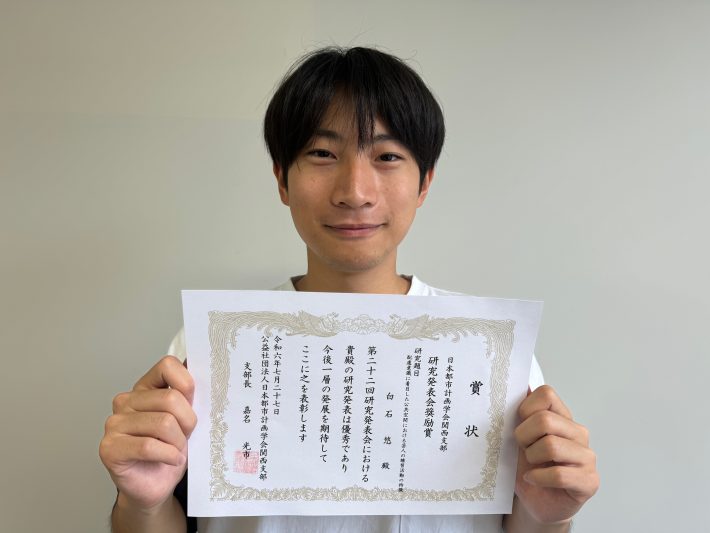 賞状
日本都市計画学会関西支部
研究発表会奨励賞
研究題目
配慮意識に着目した公共空間における芸人の練習活動の特徴
白石 悠 殿
第二十二回研究発表会における
貴殿の研究発表は優秀であり
今後一層の発展を期待して
ここに之を表彰します
令和六年七月二十七日
公益社団法人日本都市計画学会関西支部
支部長 嘉名 光市